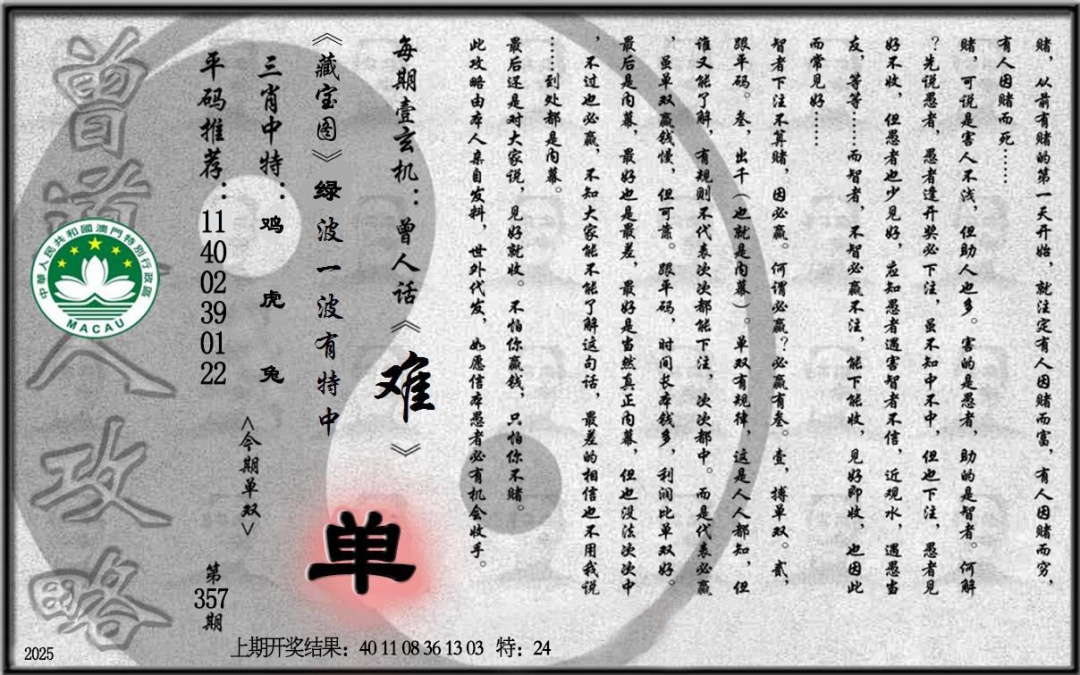 赌，从前有赌的第一天开始，就注定有人因赌而富，有人因赌而穷，
有人因赌而死……
赌，可说是害人不浅，但助人也多。害的是愚者，助的是智者。何解
？先说愚者，愚者逢开奖必下注，虽不知中不中，但也下注，愚者见
好不收，但愚者也少见好，应知愚者遇害智者不信，近观水，遇愚当
友，等等……而智者，不智必赢不注，能下能收，见好即收，也因此
而常见好……
智者下注不算赌，因必赢。何谓必赢？必赢有叁。壹，搏单双。贰，
跟单码。叁，出千（也就是内幕）。单双有规律，这是人人都知，但
谁又能了解，有规则不代表次次都能下注，次次都中。而是代表必赢
，虽单双赢钱慢，但可靠。跟单码，时间长本钱多，利润比单双好。
最后是内幕，最好也是最差，最好是当然真正内幕，但也没法次次中
，不过也必赢，不知大家能不能了解这句话，最差的相信也不用我说
……到处都是内幕。
最后还是对大家说，见好就收。不怕你赢钱，只怕你不赌。
此攻略由本人亲自发料，世外代发，如愿信本愚者必有机会收手。
每期壹玄机：曾人话《难》
《藏宝图》绿波一波有特中
单
三肖中特：鸡 虎 兔
<今期单双>
平码推荐：11 40 02 39 01 22
第357期
曾道人攻略
中華人民共和國澳門特別行政區
MACAU
2025
上期开奖结果：40 11 08 36 13 03 特：24